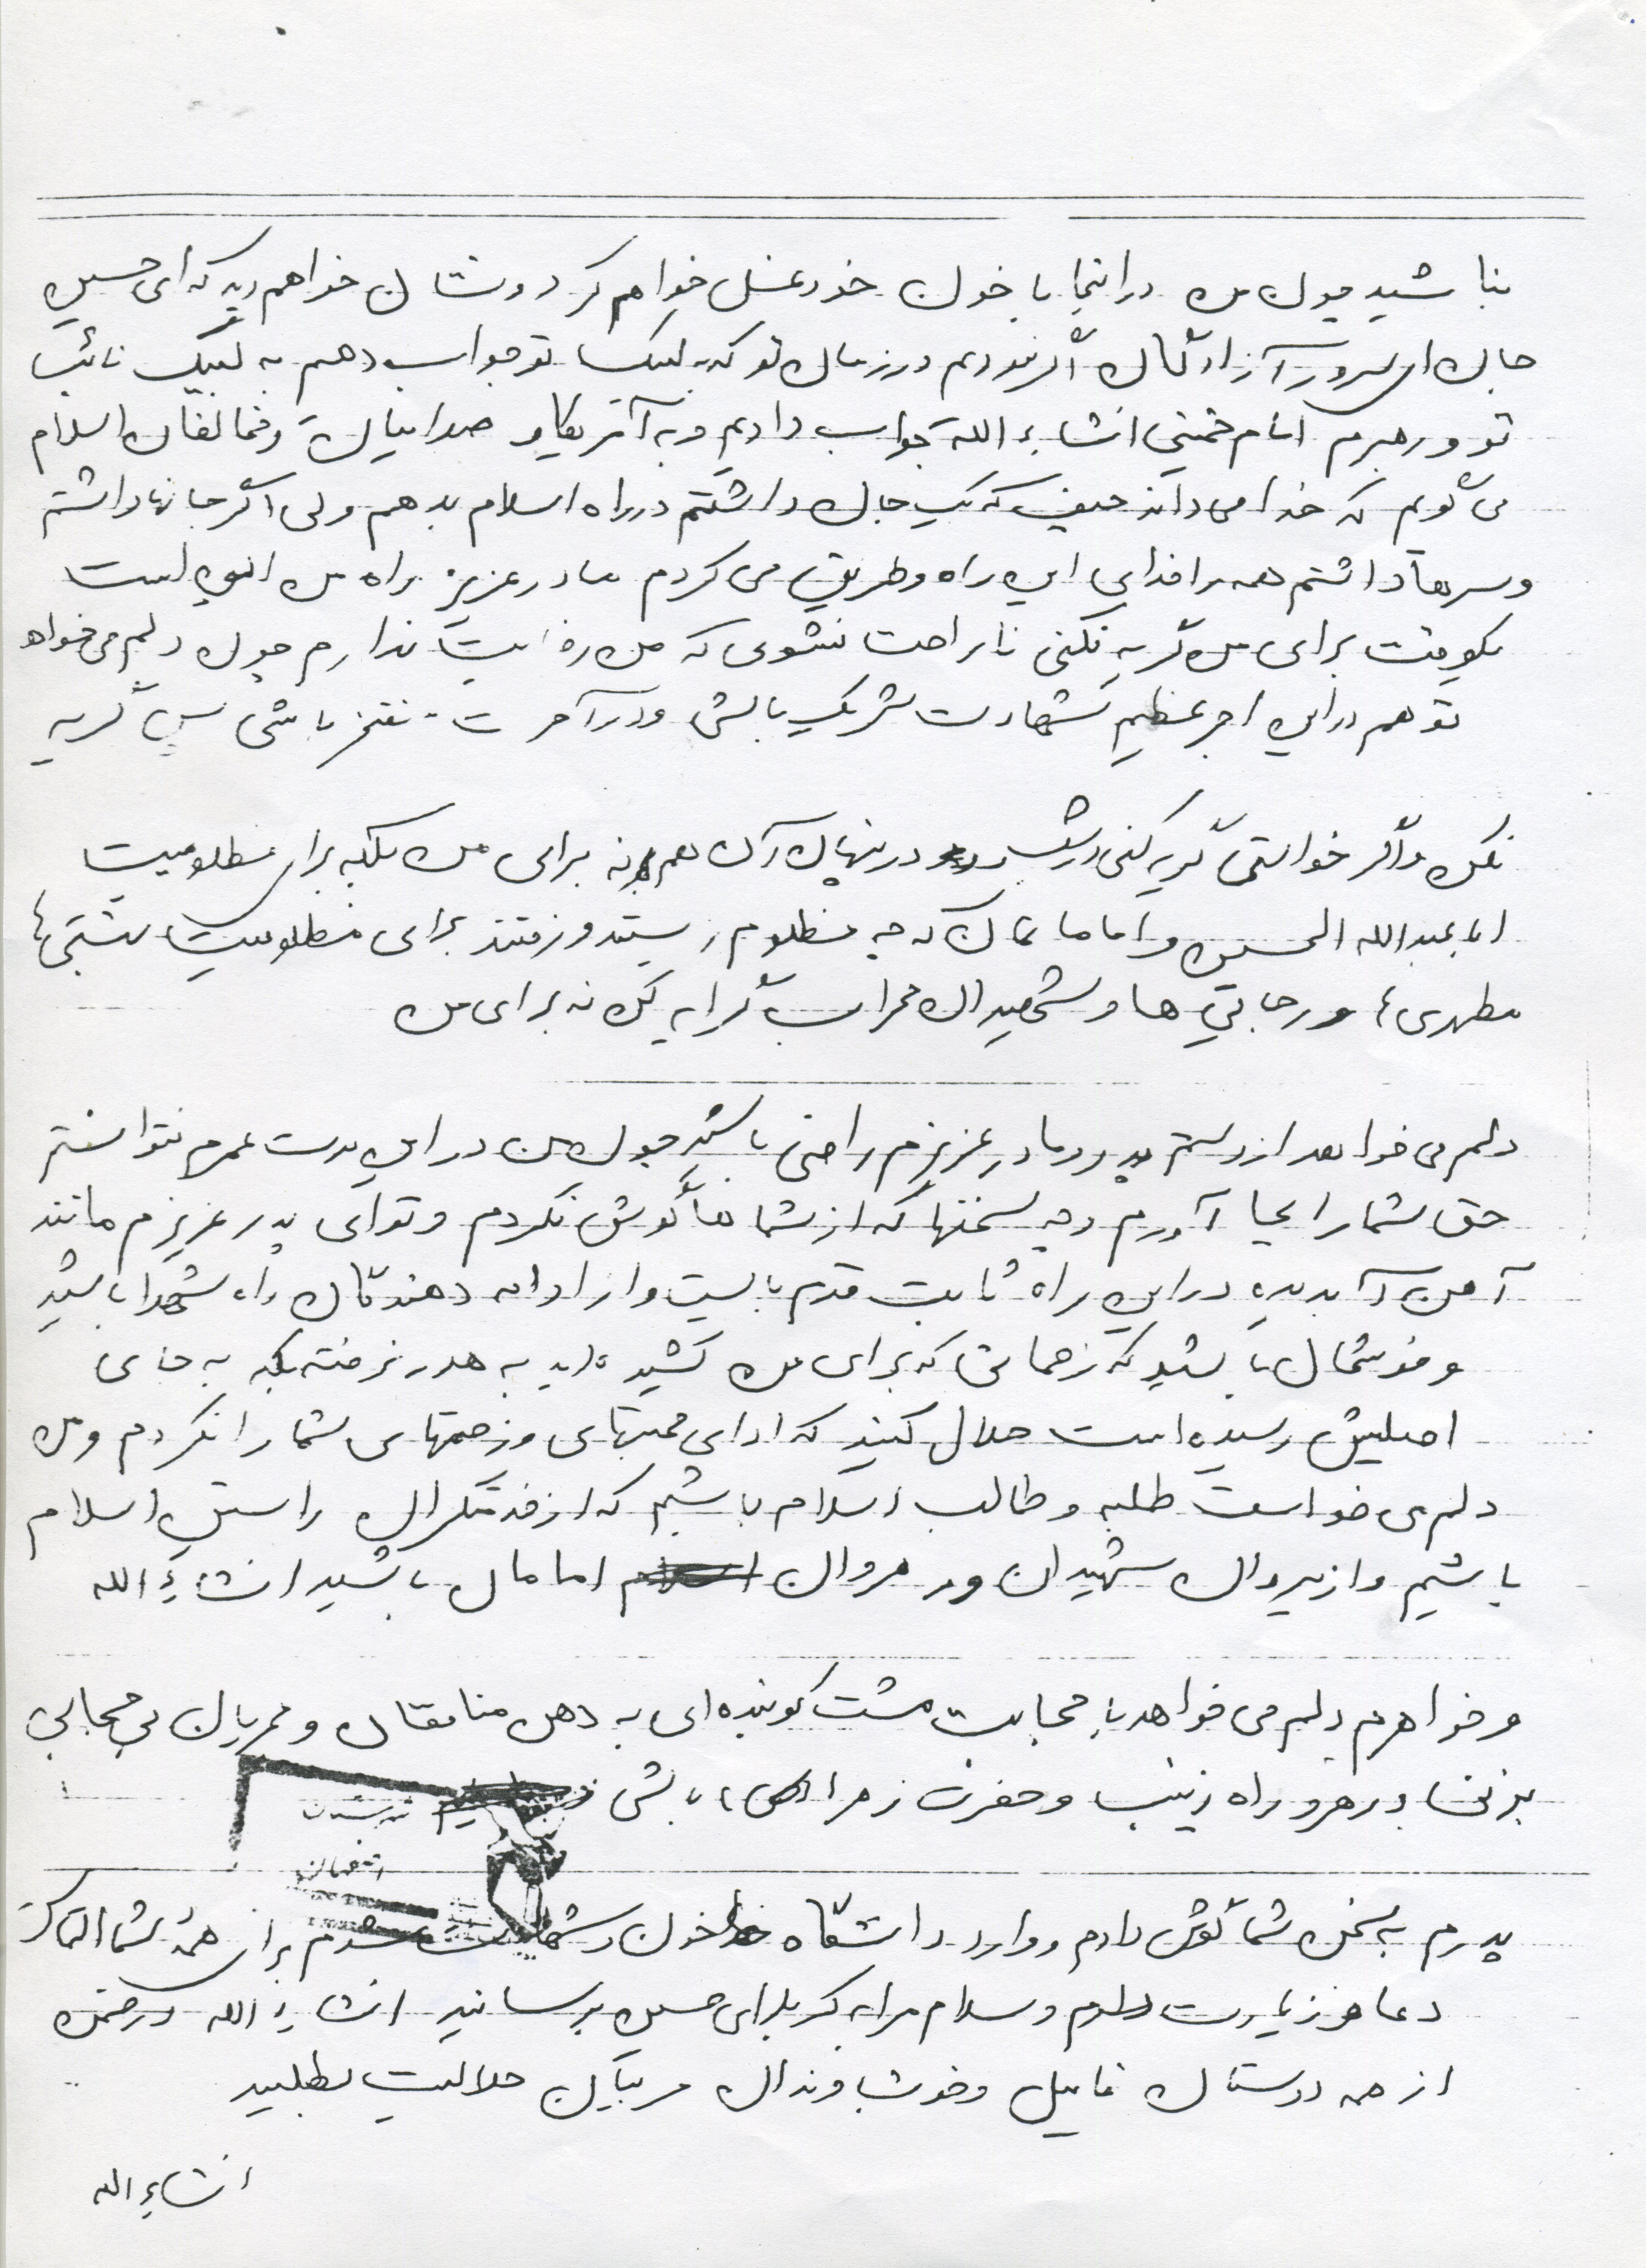 نباشید چون من در اینجا با خون خود غسل خواهم کرد و نشان خواهم داد که ای حسین
جان ای سرور آزادگان اگر نبودم در زمان تو که به لبیک تو جواب دهم به لبیک نائب
تو و رهبرم امام خمینی انشاء الله جواب دادیم و به آمریکا و صدامیان و مخالفان اسلام
می گویم که خدا می داند حیف که یک جان داشتم در راه اسلام بدهم ولی اگر جانها داشتم
و سرها داشتم همه را فدای این راه و طریق می کردم مادر عزیز راه من این است
یکوقت برای من گریه نکنی ناراحت نشوی که من رضایت ندارم چون دلم می خواهد
تو هم در این اجر عظیم شهادت شریک باش و در آخرت مفتخر باشی پس گریه
نکن و اگر خواستی گریه کنی در شب و در پنهان آن هم نه برای من بلکه برای مظلومیت
ابا عبدالله الحسین و امامانمان که چه مظلوم زیستند و رفتند برای مظلومیت بهشتی ها
مطهری ها و رجایی ها و شهیدان محراب گرایه کن نه برای من
دلم می خواهد از دستم پدر و مادر عزیزم راضی باشید چون من در این مدت عمرم نتوانستم
حق شما را بجا آورم و چه سخنها که از شماها گوش نکردم و تو ای پدر عزیزم مانند
آهن آبدیده در این راه ثابت قدم بایست و از ادامه دهندگان راه شهدا باشید
و خوشحال باشید که زحماتی که برای من کشیده اید به هدر نرفته بلکه به جای
اصلیش رسیده است حلال کنید که ادای محبتهای و زحمتهای شما را نکردم و من
دلم می خواست طلبه و طالب اسلام باشیم که از خدمتگزاران راستین اسلام
باشیم و از پیروان شهیدان و رهروان امامان باشید انشاء الله
و خواهرم دلم می خواهد با حجابت مشت کوبنده ای به دهن منافقان و مجریان بی حجابی
بزنی و رهرو راه زینب و حضرت زهرا (س) باشی
پدرم به سخن شما گوش دادم و وارد دانشگاه خون و شهادت شدم از همه شما التماس
دعا و زیارت دارم و سلام مرا به کربلای حسین برسانید انشاء الله در ضمن
از همه دوستان فامیل و خوشاوندان مربیان حلالیت بطلبید
انشاء الله